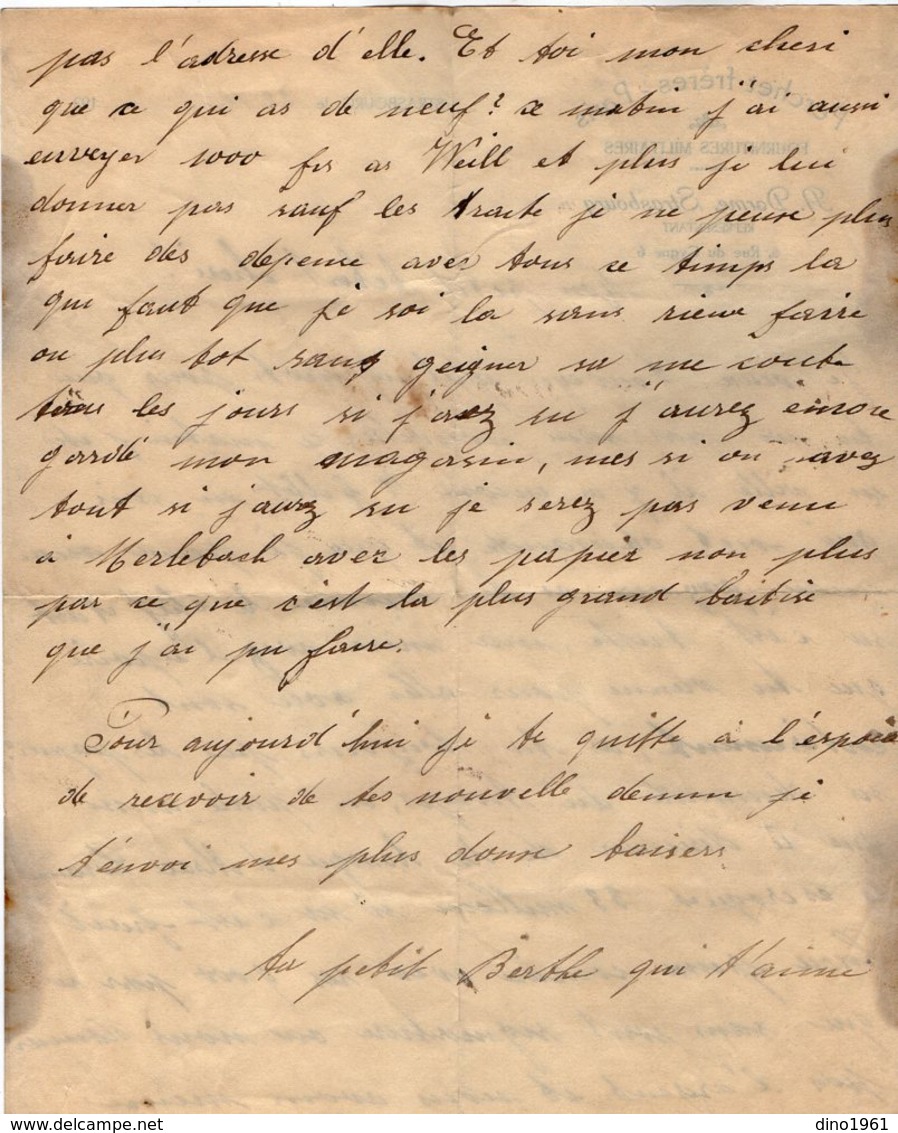 pas l'adresse d'elle. Et toi mon cheri
que ce qui as de neuf? ce matin j'ai aussi
envoyer 1000 frs as Weill et plus je lui
donner pas sauf les traite je ne peux plus
faire des depense avec tous ce temps la
qui faut que je soi la sans rieux faire
ou plus tot sans geigner sa me coute
tous les jours si j'avez su j'aurez encore
gardé mon magasin, mes si on savez
tout si j'aurez su je serez pas venu
à Merlebach avec les papier non plus
par ce que c'est la plus grand baitise
que j'ai pu faire.
Pour aujourd'hui je te quitte à l'espoir
de recevoir de tes nouvelle demin je
t'envoi mes plus doux baisers
ta petit Berthe qui t'aime
dino1961